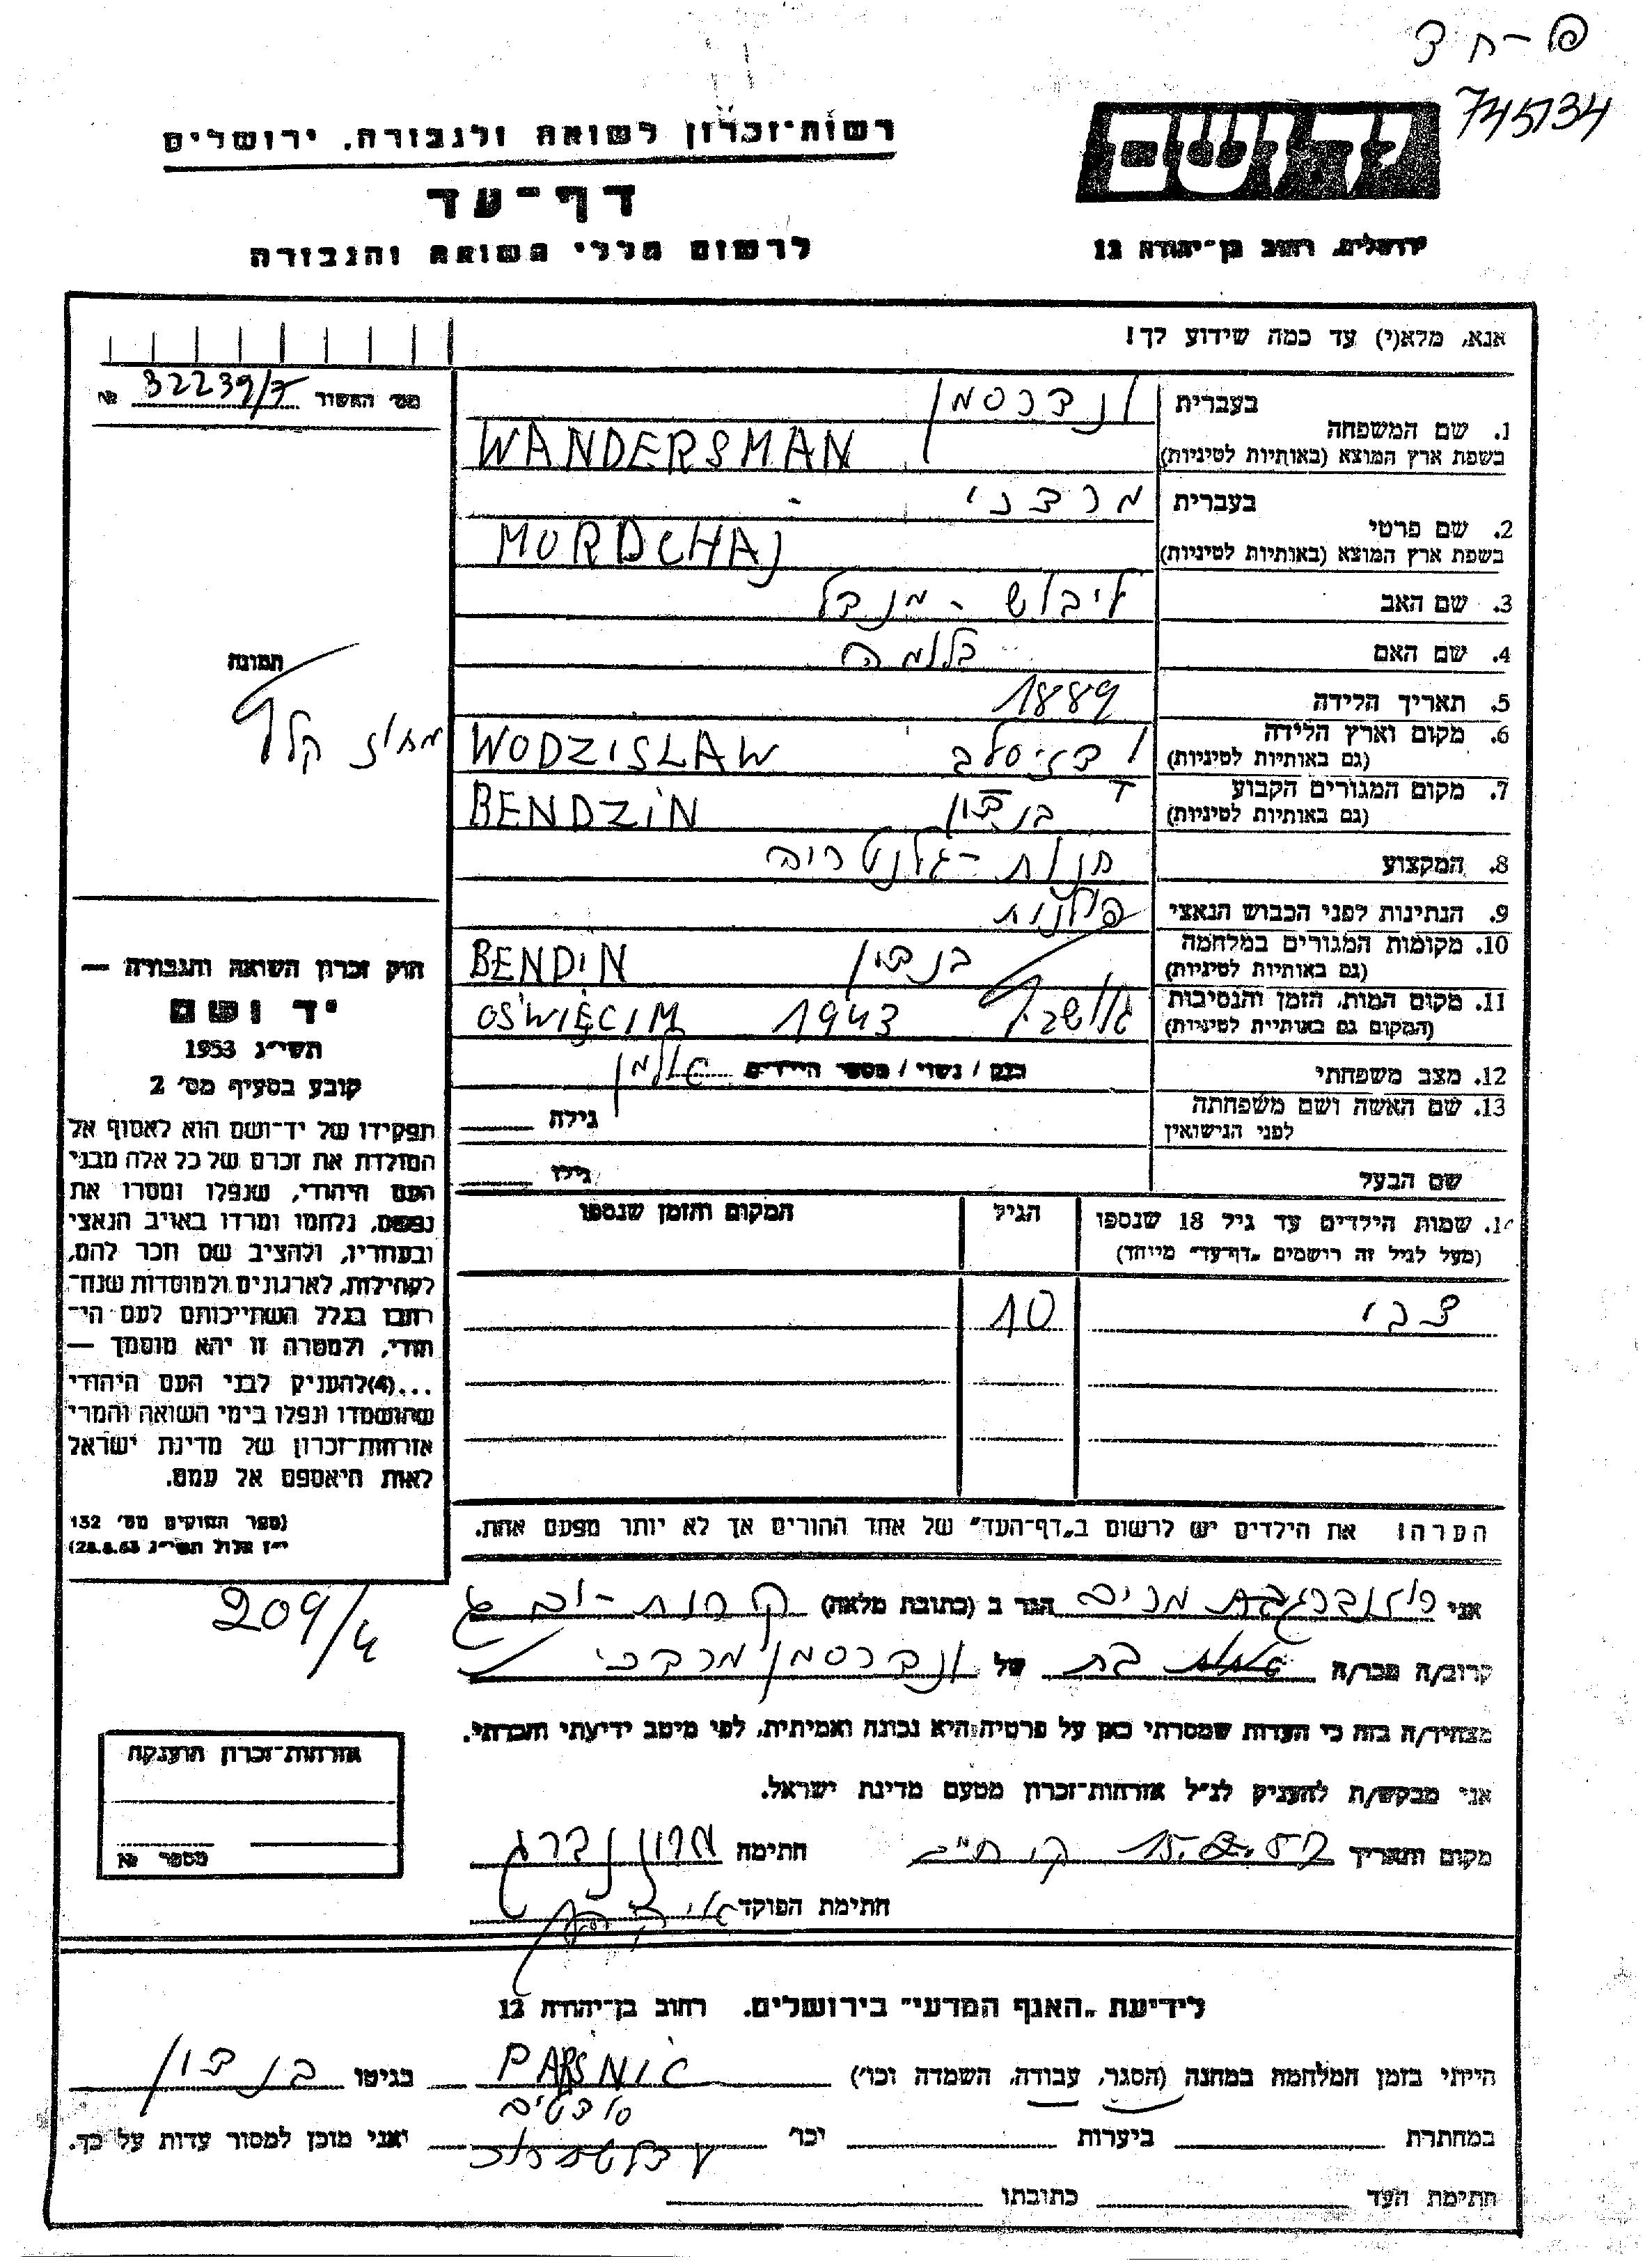 פ-ח צ
745134
יד ושם
רשות־זכרון לשואה ולגבורה, ירושלים
דף־עד
לרשום חללי השואה והגבורה
ירושלים, רחוב בן־יהודה 12
אנא, מלא(י) עד כמה שידוע לך!
מס׳ האשור 32239/7 №
1. שם המשפחה
בעברית ונדרסמן
בשפת ארץ המוצא (באותיות לטיניות) WANDERSMAN
2. שם פרטי
בעברית מרדכי
בשפת ארץ המוצא (באותיות לטיניות) MORDCHAJ
3. שם האב ליבוש - מנדל
4. שם האם בלומה
תמונה
5. תאריך הלידה 1889
6. מקום וארץ הלידה
(גם באותיות לטיניות) ודזיסלב WODZISLAW
מחוז קלץ
7. מקום המגורים הקבוע
(גם באותיות לטיניות) בנדין BENDZIN
8. המקצוע חנות - גלנטריה
9. הנתינות לפני הכבוש הנאצי פולנית
10. מקומות המגורים במלחמה
(גם באותיות לטיניות) בנדין BENDIN
11. מקום המות, הזמן והנסיבות
(המקום גם באותיות לטיניות) 1943 OŚWIĘCIM
12. מצב משפחתי רווק / נשוי / מספר הילדים אלמן
13. שם האשה ושם משפחתה
לפני הנישואין גילה
שם הבעל גילו
14. שמות הילדים עד גיל 18 שנספו
(מעל לגיל זה רושמים „דף־עד״ מיוחד)
הגיל
המקום והזמן שנספו
צבי 10
הערה! את הילדים יש לרשום ב„דף־העד״ של אחד ההורים אך לא יותר מפעם אחת.
חוק זכרון השואה והגבורה —
יד ושם
תשי״ג 1953
קובע בסעיף מס׳ 2
תפקידו של יד־ושם הוא לאסוף אל
המולדת את זכרם של כל אלה מבני
העם היהודי, שנפלו ומסרו את
נפשם, נלחמו ומרדו באויב הנאצי
ובעוזריו, ולהציב שם וזכר להם,
לקהילות, לארגונים ולמוסדות שנח־
רבו בגלל השתייכותם לעם הי־
הודי, ולמטרה זו יהא מוסמך —
...(4)להעניק לבני העם היהודי
שהושמדו ונפלו בימי השואה והמרי
אזרחות־זכרון של מדינת ישראל
לאות היאספם אל עמם.
(ספר החוקים מס׳ 132
י״ז אלול תשי״ג 28.8.53)
209/4
אני מרים הגר ב (כתובת מלאה) קרית - ים
קרוב/ה מכר/ה בת של ונדרסמן מרדכי
מצהיר/ה בזה כי העדות שמסרתי כאן על פרטיה היא נכונה ואמיתית, לפי מיטב ידיעתי והכרתי.
אני מבקש/ת להעניק לנ״ל אזרחות־זכרון מטעם מדינת ישראל.
מקום ותאריך 15.2.57 חתימה
חתימת הפוקד
אזרחות־זכרון הוענקה
מספר №
לידיעת „האגף המדעי״ בירושלים. רחוב בן־יהודה 12
הייתי בזמן המלחמה במחנה (הסגר, עבודה, השמדה וכו׳) בגיטו בנדין
במחתרת ביערות וכו׳ ואני מוכן למסור עדות על כך.
חתימת העד כתובתו